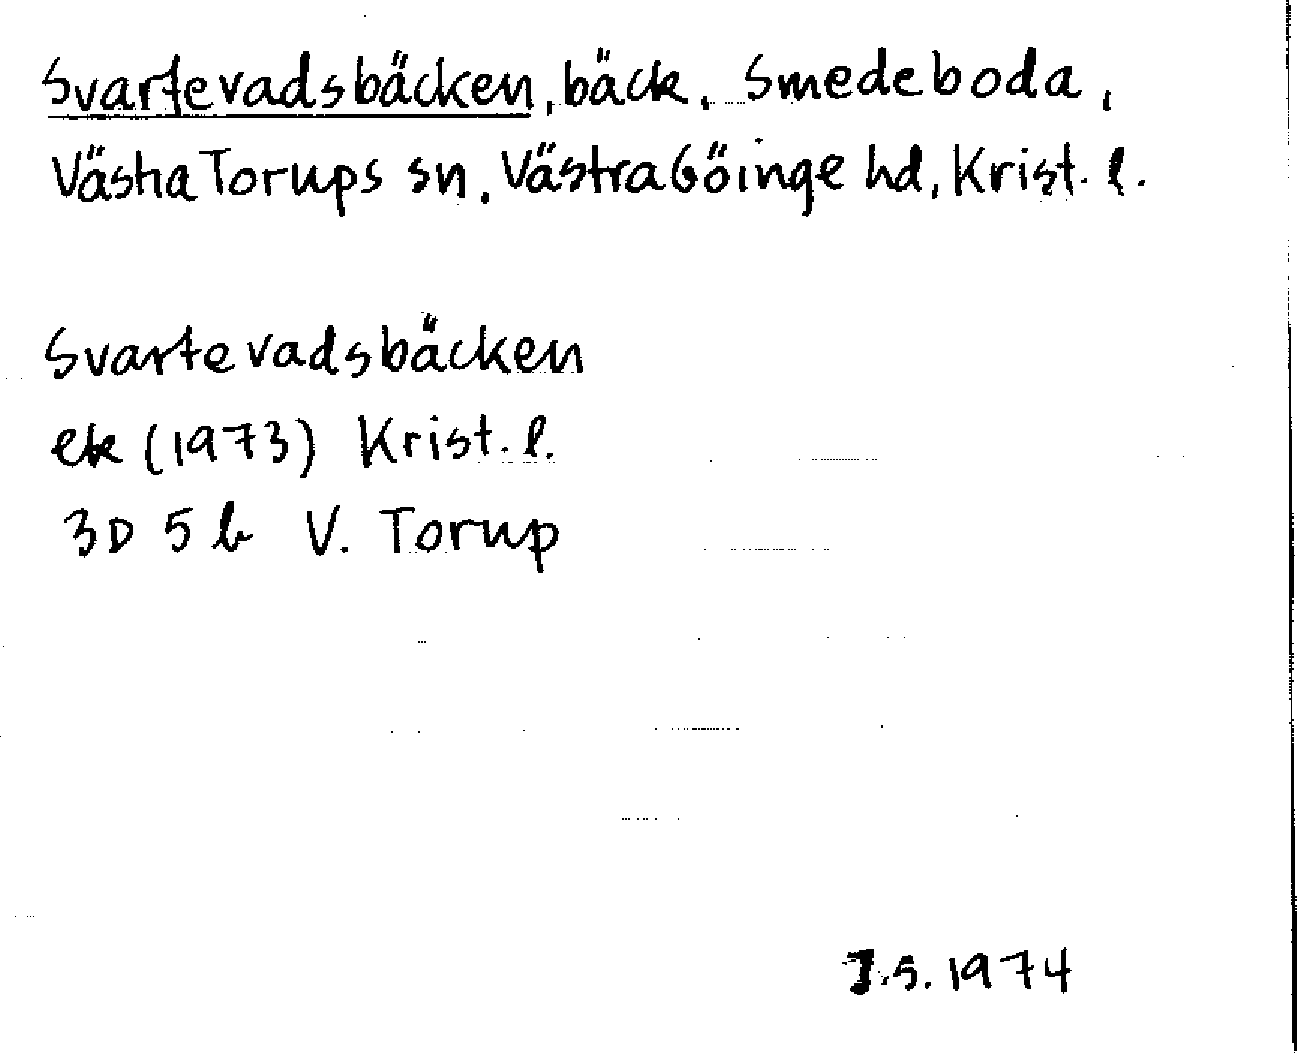 Svartevadsbäcken, bäck, Smedeboda,
Västra Torups sn, Västra Göinge hd, Krist. l.
Svartevadsbäcken
ek (1973) Krist. l.
3D 5b V. Torup
J.S. 1974